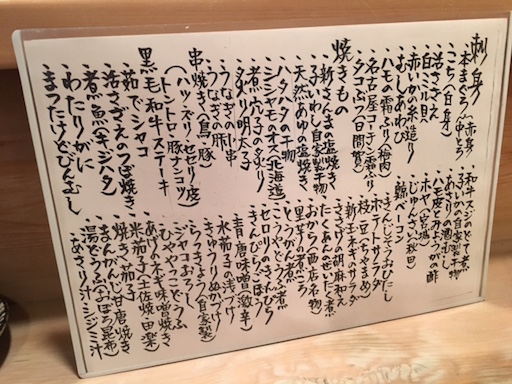 刺身
・本まぐろ(赤身 中とろ)
・こち(白身)
・活さざえ
・白ミル貝
・赤いかの糸造り
・むしあわび
・ハモの霜ふり(梅肉)
・名古屋コーチン(霜ふり)
・タコぶつ(日間賀)
焼きもの
・新さんまの塩焼き
・子いわし自家製干物
・天然あゆの塩焼き
・ハタハタの干物
・シシャモのオス(北海道)
・煮穴子の炙り
・タタキ明太子
・うなぎの串
・うなぎの肝
・串焼き(鳥・豚)
(ハツ・ズリ・セセリ・皮
トントロ・豚ナンコツ)
黒毛和牛ステーキ
・茹でシャコ
・活さざえのつぼ焼き
・煮魚(キジハタ)
・わたりがに
・まつたけどびんむし
・和牛スジのどて煮
・子いかの自家製干物
・あさりの酒むし
・ハモ皮とおつがの酢
・ホヤ(宮城)
・じゅんさい(秋田)
・鶏ベーコン
・きんじそうおひたし
・ポテトサラダ
・枝豆・そらまめ
・新玉ネギサラダ
・ささげの胡麻和え
・たくあんのぜいたく煮
・おから(西店名物)
・里芋の煮ころ
・とうがん煮
・こうやどうふ煮
・セロリのきんぴら
・きんぴらごぼう
・水茄子の浅づけ
・青唐味噌(激辛)
・きゅうりぬかづけ
・らっきょう(自家製)
・ジャコおろし
・ひややっこどうふ
・あげのネギ味噌焼き
・米茄子(土佐焼・田楽)
・焼き茄子
・まんがんじ甘唐焼き
・湯どうふ(おぼろ昆布)
・あさり汁・シジミ汁